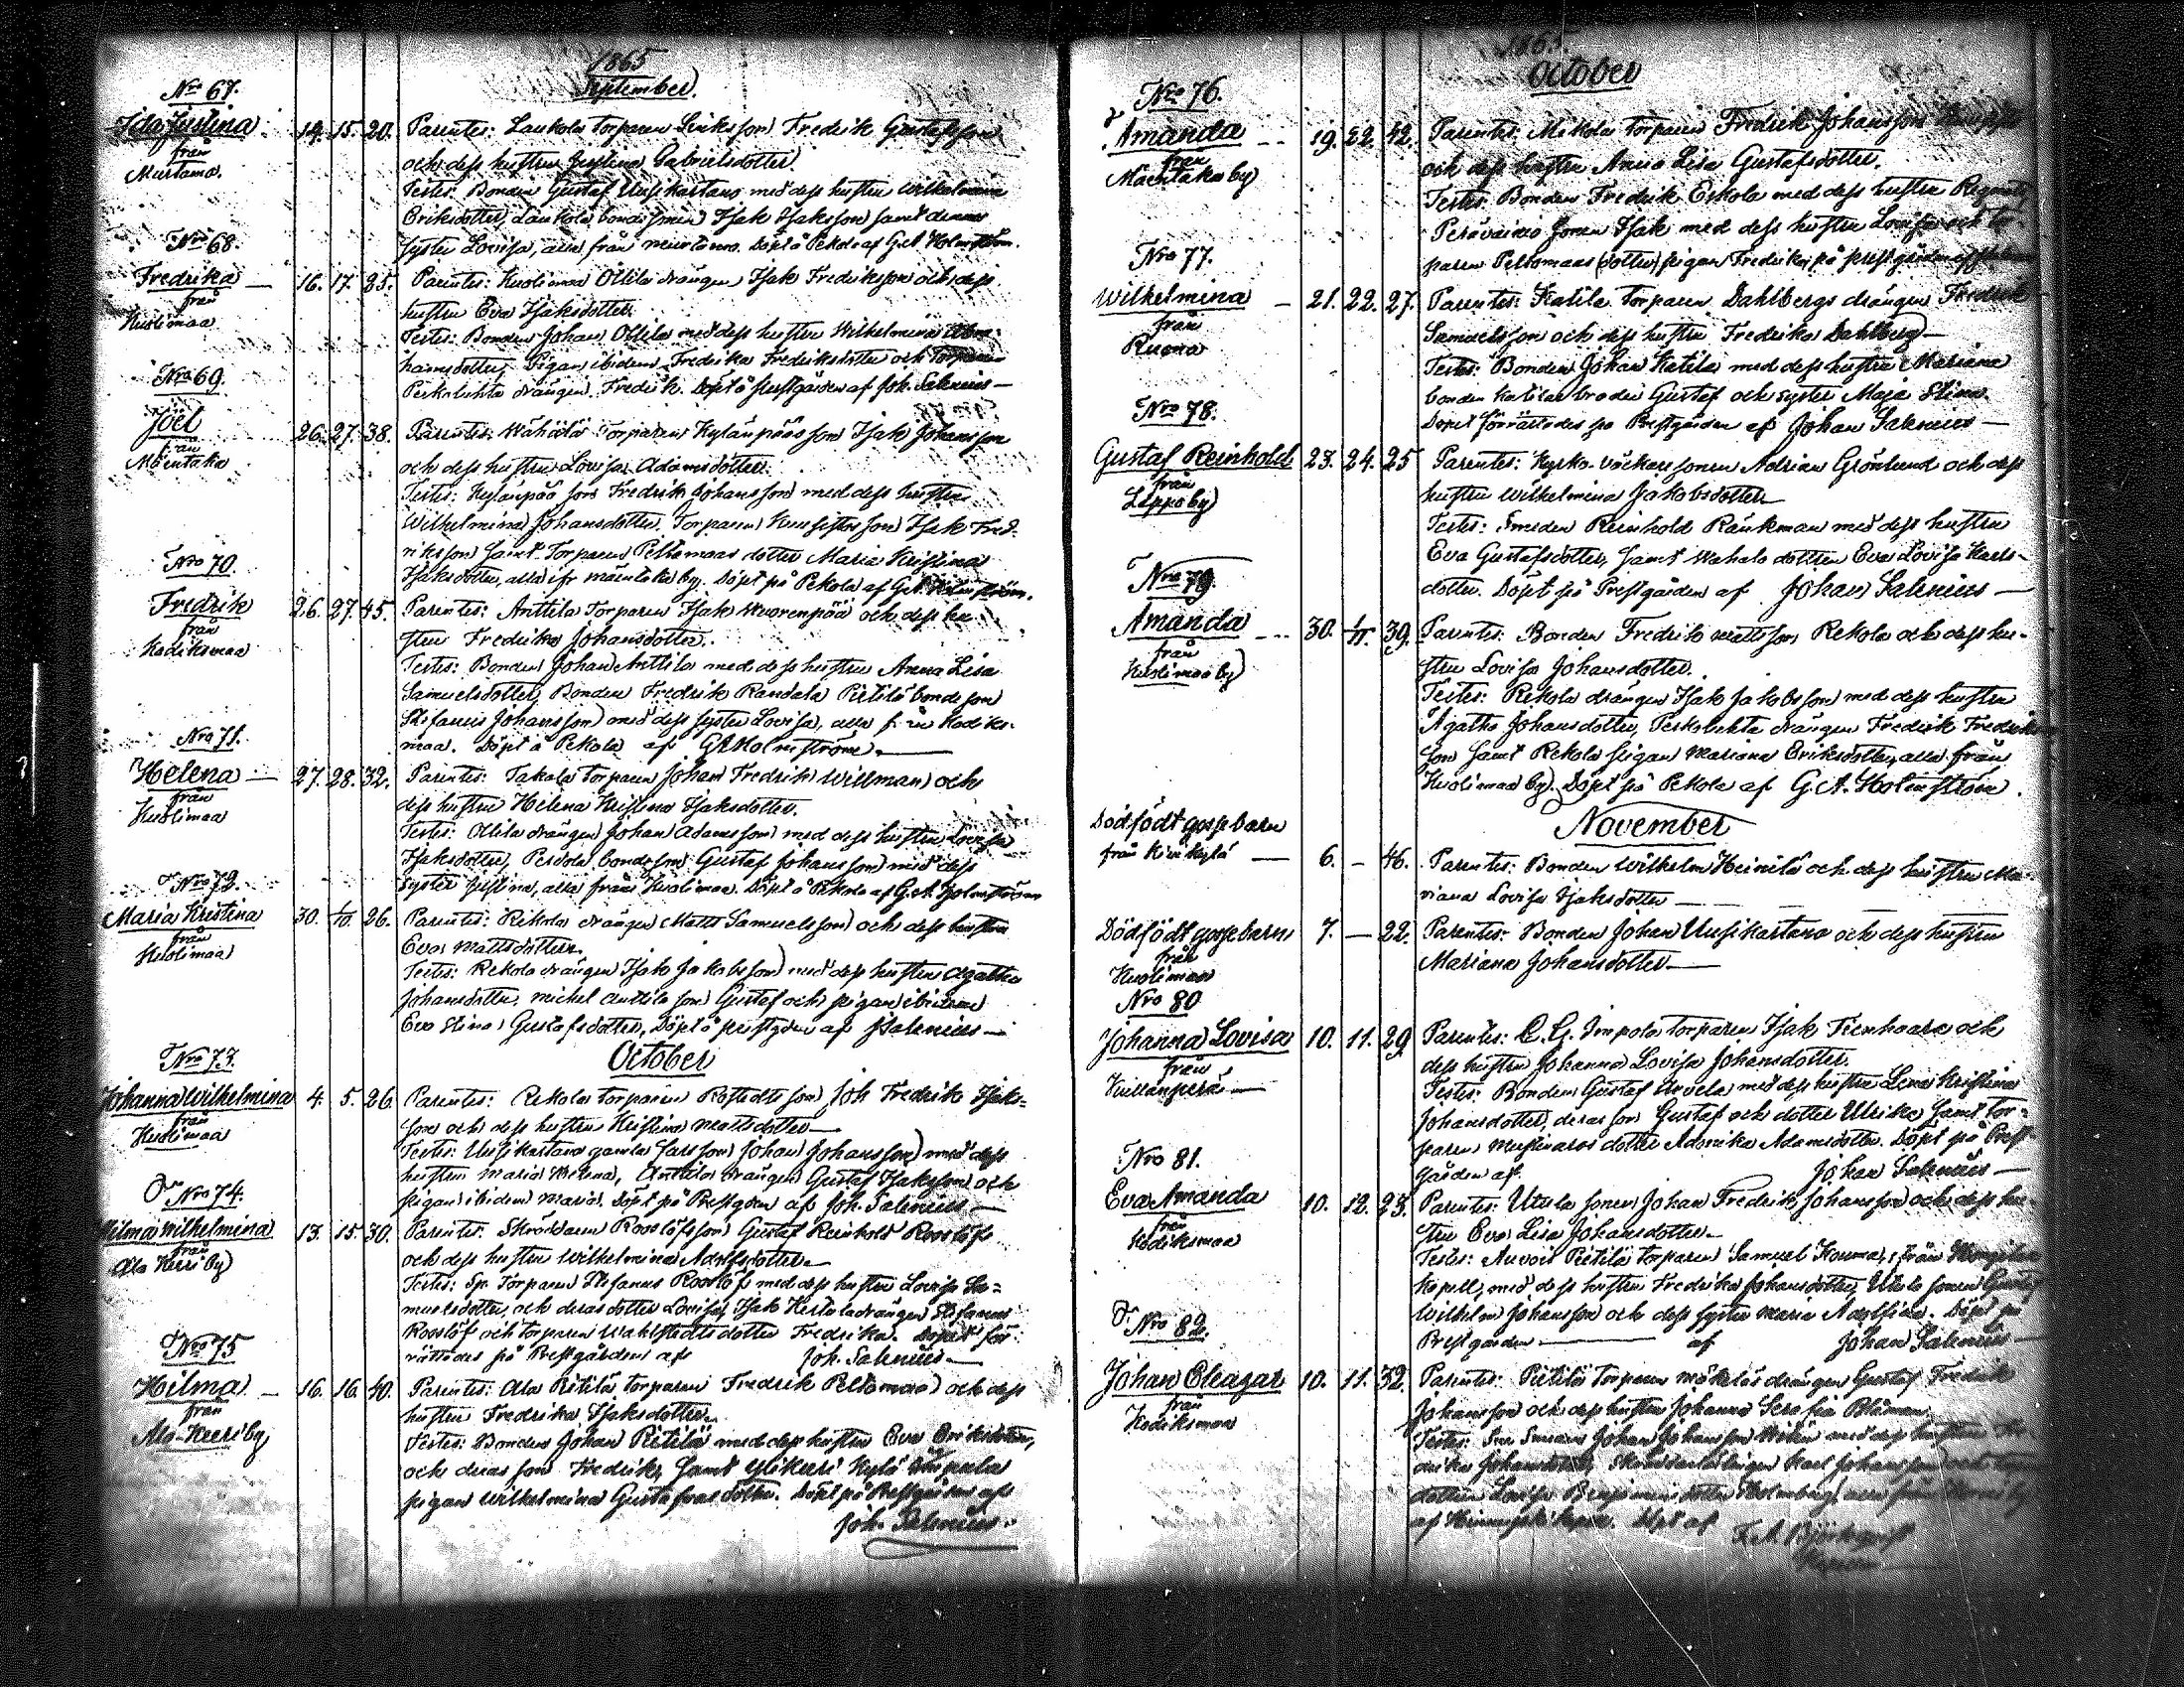 1865
September.
No 67.
Ida Justina 14. 15. 20. Parentes: Laukola Torparen Eriks son Fredrik Gustafsson
från
Murtamo.
och dess hustru Justina Gabrielsdotter.
Testes: Bonden Gustaf Uusikartano med dess hustru Wilhelmina
Eriksdotter, Laukola bondesonen Isak Isaksson samt dennes
syster Lovisa, alla från Murtamo. Döpt å Pekola af G.A. Holmström.
Nro 68.
Fredrika 16. 17. 25. Parentes: Kuolimaa Ollila drängen Isak Fredriksson och dess
från
Kuolimaa
hustru Eva Isaksdotter.
Testes: Bonden Johan Ollila med dess hustru Wilhelmina Abra-
hamsdotter, Pigan ibidem Fredrika Fredriksdotter och Torparen
Perkoluhta drängen Fredrik. Döpt å Prestgården af Joh. Salenius
Nro 69.
Joël 26. 27. 38. Parentes: Wähälä Torparen Kylänpääs son Isak Johansson
från
Mäentaka
och dess hustru Lovisa Adamsdotter.
Testes: Kylänpää son Fredrik Johansson med dess hustru
Wilhelmina Johansdotter, Torparen son Isak Fred-
riksson samt Torparen Peltomaas dotter Maria Kristina
Isaksdotter, alla ifr. Mäentaka by. Döpt på Pekola af G.A. Holmström.
Nro 70.
Fredrik 26. 27. 45. Parentes: Anttila Torparen Isak Wuorenpää och dess hu-
från
Kodiksmaa
stru Fredrika Johansdotter.
Testes: Bonden Johan Anttila med dess hustru Anna Lisa
Samuelsdotter, Bonden Fredrik Randala Pietilä bondeson
Stefanus Johansson med dess syster Lovisa, alla från Kodiks-
maa. Döpt å Pekola af GAHolmström.
Nro 71.
Helena 27. 28. 32. Parentes: Takala torparen Johan Fredrik Willman och
från
Kuolimaa
dess hustru Helena Kristina Isaksdotter.
Testes: Ollila drängen Johan Adamsson med dess hustru Lovisa
Isaksdotter, bondeson Gustaf Johansson med dess
syster Justina, alla från Kuolimaa. Döpt å Pekola af G.A. Holmström
Nro 72.
Maria Kristina 30. 1/10 26. Parentes: Rekola drängen Matts Samuelsson och dess hustru
från
Kuolimaa
Eva Mattsdotter.
Testes: Rekola drängen Isak Jakobsson med dess hustru Agatha
Johansdotter, Michel Anttila son Gustaf och pigan ibidem
Eva Stina Gustafsdotter, Döpt å prestgården af JSalenius
October
Nro 73.
Johanna Wilhelmina 4. 5. 26. Parentes: Rekola torparen Rostedts son Joh Fredrik Isaks-
från
Kuolimaa
son och dess hustru Kristina Mattsdotter
Testes: Uusikartano gamla Johan Johansson med dess
hustru Maria Helena, Anttila drängen Gustaf Isaksson och
pigan ibidem Maria. Döpt på Prestgården af Joh. Salenius
Nro 74.
Hilma Wilhelmina 13. 15. 30. Parentes: Skräddaren Rooslöfs son Gustaf Reinhold Rooslöf
från
Ala Kerri by
och dess hustru Wilhelmina Adolfsdotter
Testes: Torparen Stefanus Rooslöf med dess hustru Lovisa Sa-
muelsdotter, och deras dotter Lovisa, Isak drängen Stefanus
Rooslöf och torparen Wahlstedts dotter Fredrika. Dopet för-
rättades på Prestgården af Joh. Salenius
Nro 75
Hilma 16. 16. 40. Parentes: Ala Pietilä torparen Fredrik Peltomaa och dess
från
Ala-Kerri by
hustru Fredrika Isaksdotter.
Testes: Bonden Johan Pietilä med dess hustru Eva Eriksdotter,
och deras son Fredrik, samt Kylä
pigan Wilhelmina Gustafsdotter. Döpt på Prestgården af
Joh. Salenius
1865.
October
Nro 76.
Amanda 19. 22. 42. Parentes: Mikola torparen Fredrik Johansson
från
Mäentaka by
och dess hustru Anna Lisa Gustafsdotter.
Testes: Bonden Fredrik Eskola med dess hustru
Perävainio sonen Isak med dess hustru Lovisa och Tor-
paren Peltomaas dotter pigan Fredrika, på prestgården af
Nro 77.
Wilhelmina 21. 22. 27. Parentes: Katila torparen Dahlbergs drängen Fredrik
från
Ruona
Samuelsson och dess hustru Fredrika Dahlberg
Testes: Bonden Johan Katila med dess hustru Mariana
bonden Katilas broder Gustaf och syster Maja Stina.
Dopet förrättades på Prestgården af Johan Salenius
Nro 78.
Gustaf Reinhold 23. 24. 25 Parentes: Kyrko-väcktare sonen Adrian Grönlund och dess
från
Leppä by
hustru Wilhelmina Jakobsdotter
Testes: Smeden Reinhold Ränkman med dess hustru
Eva Gustafsdotter, samt dottren Eva Lovisa Karls-
dotter. Döpt på Prestgården af Johan Salenius
Nro 79.
Amanda 30. 1/11. 39. Parentes: Bonden Fredrik Mattsson Rekola och dess hu-
från
Kuolimaa by
stru Lovisa Johansdotter.
Testes: Rekola drängen Isak Jakobsson med dess hustru
Agatha Johansdotter, Perkoluhta drängen Fredrik Fredriks-
son samt Rekola pigan Mariana Eriksdotter, alla från
Kuolimaa by. Döpt på Pekola af G.A. Holmström.
November
Dödfödt gossebarn
från Kivikylä 6. — 46. Parentes: Bonden Wilhelm Heinilä och dess hustru Ma-
riana Lovisa Isaksdotter
Dödfödt gossebarn 7. — 22. Parentes: Bonden Johan Uusikartano och dess hustru
från
Kuolimaa
Mariana Johansdotter
Nro 80
Johanna Lovisa 10. 11. 29 Parentes: torparen Isak Tienhaara och
från
dess hustru Johanna Lovisa Johansdotter.
Testes: Bonden Gustaf Arvela med dess hustru Lena Kristina
Johansdotter, deras son Gustaf och dotter Ulrika, samt Tor-
paren dotter Adamsdotter. Döpt på Prest-
gården af Johan Salenius
Nro 81.
Eva Amanda 10. 12. 23. Parentes: Utula sonen Johan Fredrik Johansson och dess hu-
från
Kodiksmaa
stru Eva Lisa Johansdotter
Testes: Pietilä torparen Samuel från
kapell, med dess hustru Fredrika Johansdotter, Utula sonen Gustaf
Wilhelm Johansson och dess syster Maria Adolfina. Döpt på
Prestgården af Johan Salenius
Nro 82.
Johan Eleazar 10. 11. 32. Parentes: Pietilä torparen drängen Gustaf Fredrik
från
Kodiksmaa
Johansson och dess hustru Johanna Serafia
Testes: Johan Johansson med dess hustru
Johansdotter, Karl Johansson
dottren Lovisa
af Döpt af